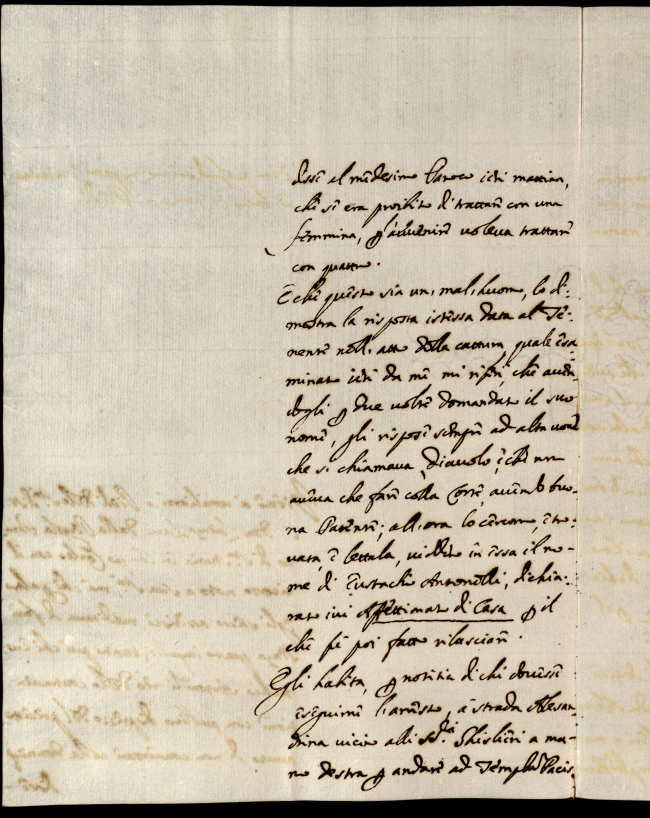 dissi al medesimo Paroco ieri mattina,
che si era proibito di trattare con una
femmina, p l'avvenire voleva trattare
con quattro.
E che questo sia un, mal, huomo, lo di:
mostra la risposta istessa data al Te:
nente nell, atto della cattura, quale esa
minato ieri da me mi riferì, che aven:
dogli p due volte domandato il suo
nome, gli rispose sempre ad alta voce
che si chiamava Diavolo, e che non
aveva che fare colla Corte, avendo buo:
na Patente; all, ora lo cercorno, e tro:
vata, e lettala, viddero in essa il no:
me di Eustachio Antonelli, dichia:
rato ivi Affettionato di Casa p il
che fù poi fatto rilasciare.
Egli habita, p notitia di chi dovesse
eseguirne l'arresto, a strada Alesan:
drina vicino alli Sri Ghislieri a ma:
no destra p andare ad Templũ Pacis